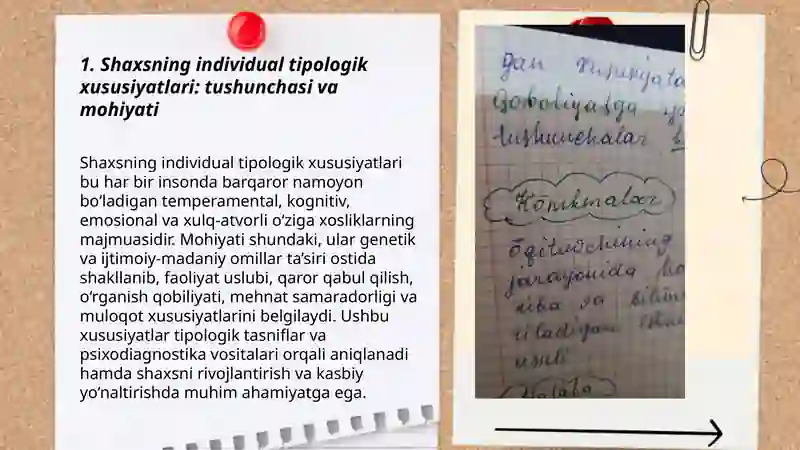 1. Shaxsning individual tipologik
xususiyatlari: tushunchasi va
mohiyati
Shaxsning individual tipologik xususiyatlari
bu har bir insonda barqaror namoyon
bo‘ladigan temperamental, kognitiv,
emosional va xulq-atvorli o‘ziga xosliklarning
majmuasidir. Mohiyati shundaki, ular genetik
va ijtimoiy-madaniy omillar ta’siri ostida
shakllanib, faoliyat uslubi, qaror qabul qilish,
o‘rganish qobiliyati, mehnat samaradorligi va
muloqot xususiyatlarini belgilaydi. Ushbu
xususiyatlar tipologik tasniflar va
psixodiagnostika vositalari orqali aniqlanadi
hamda shaxsni rivojlantirish va kasbiy
yo‘naltirishda muhim ahamiyatga ega.
gan
Qoboliyatga
tushunchalar
Konikmalar
jarayonida
va bilim
usuli